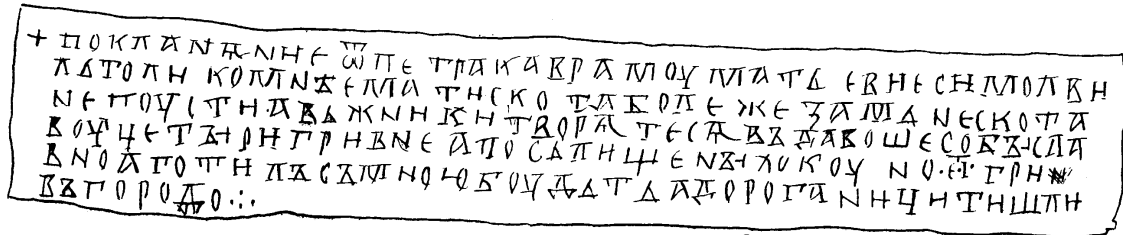 + ПОКЛАНѦNИЕ Ѿ ПЕТРА КАВРАМОУ МАТЬ ЕВНЕСИ МОЛВИ
ЛЬТОЛИ КОЛИNЪЕМЛА ТИСКОТАБОЛЕЖЕ ЗАМЬ NЕСКОТА
NЕПОУСТИ·АВЬЖNИКИТВОРѦТЕСѦВЪДАВОШЕСОВЪСЛА
ВОУЦЕТЪІРИГРИВNЕ АПОСЪЛИЩЕNЪІЛОКОУ NО·Е҃·ГРИ
ВNОАГОТИЛЪСЪМNОЮБОУДЬТЬАДОРОГАNИЦИТИШЛИ
ВЪГОРОДО·:·